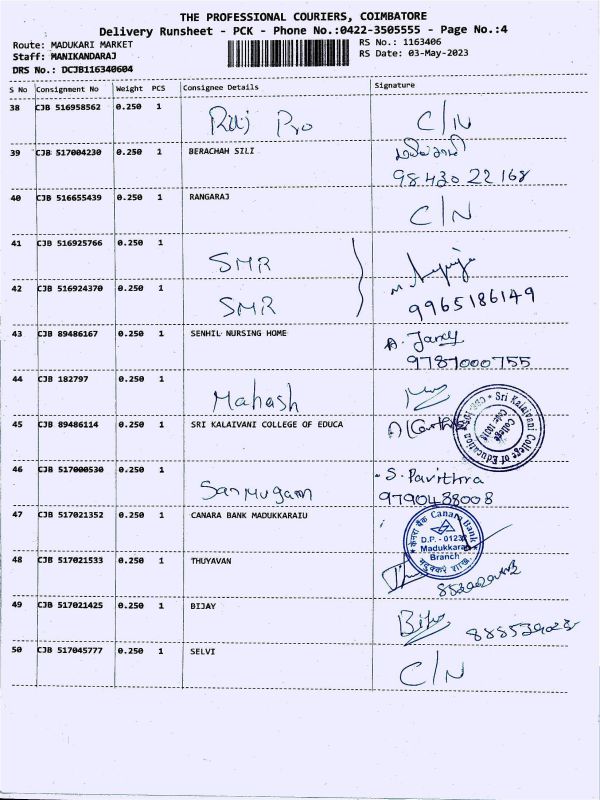 THE PROFESSIONAL COURIERS, COIMBATORE
Delivery Runsheet - PCK - Phone No.:0422-3505555 - Page No.:4
Route: MADUKARI MARKET
Staff: MANIKANDARAJ
DRS No.: DCJB116340604
RS No.: 1163406
RS Date: 03-May-2023
S No Consignment No Weight PCS Consignee Details Signature
38 CJB 516958562 0.250 1 Pro C/N
39 CJB 517004230 0.250 1 BERACHAH SILI
98430 22168
40 CJB 516655439 0.250 1 RANGARAJ C/N
41 CJB 516925766 0.250 1 SMR
42 CJB 516924370 0.250 1 SMR 9965186149
43 CJB 89486167 0.250 1 SENHIL NURSING HOME A. Jancy
9787000755
44 CJB 182797 0.250 1 Mahash
45 CJB 89486114 0.250 1 SRI KALAIVANI COLLEGE OF EDUCA
Sri Kalaivani College of Education
College
46 CJB 517000530 0.250 1 Sanmugam S. Pavithra
9790488008
47 CJB 517021352 0.250 1 CANARA BANK MADUKKARAIU
केनरा बैंक Canara Bank
D.P. - 0123
Madukkarai
Branch
मदुक्करै शाखा
48 CJB 517021533 0.250 1 THUYAVAN
49 CJB 517021425 0.250 1 BIJAY
50 CJB 517045777 0.250 1 SELVI C/N